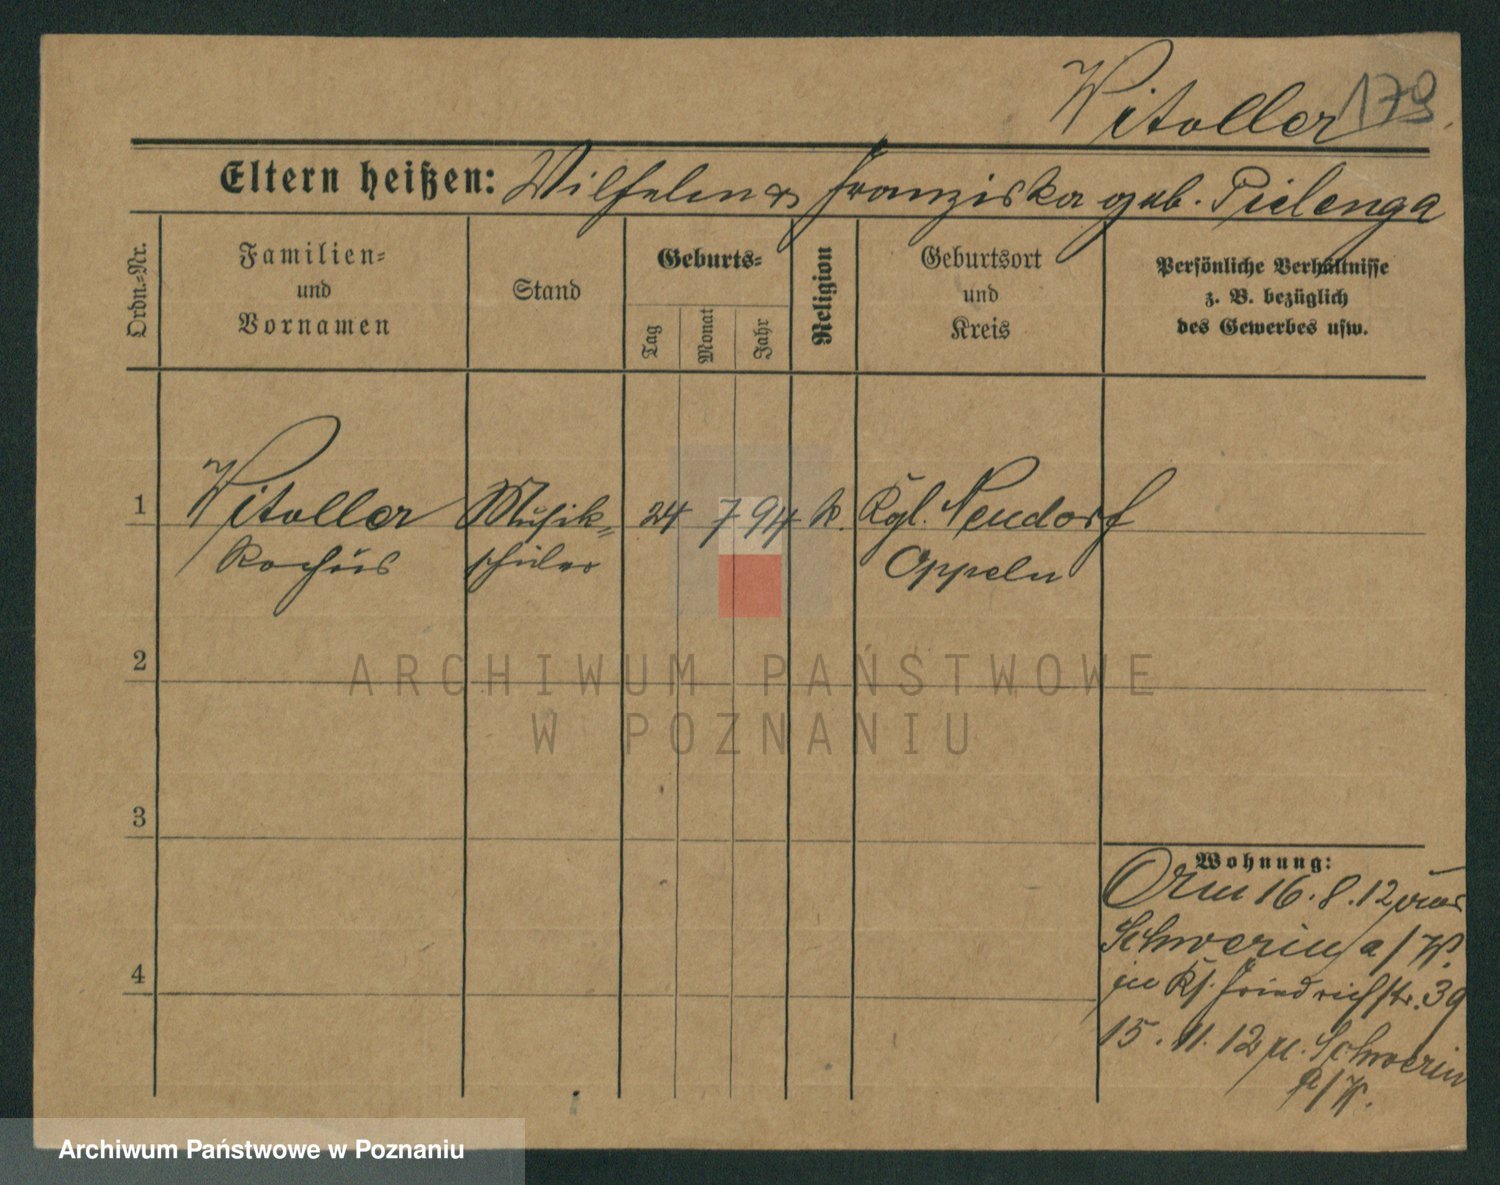 Witoller 179
Eltern heißen: Wilhelm & Franziska geb. Pielenga
Ordn.=Nr.
Familien=
und
Vornamen
Stand
Geburts=
Tag
Monat
Jahr
Religion
Geburtsort
und
Kreis
Persönliche Verhältnisse
z. B. bezüglich
des Gewerbes usw.
1 Witoller Musik= 24 7 94 k. Kgl. Neudorf
Rochus schüler Oppeln
2
ARCHIWUM PAŃSTWOWE
W POZNANIU
3
4
Wohnung:
16.8.12
Schwerin a/W.
Friedrichstr. 39
15.11.12 n. Schwerin
a/W.
Archiwum Państwowe w Poznaniu